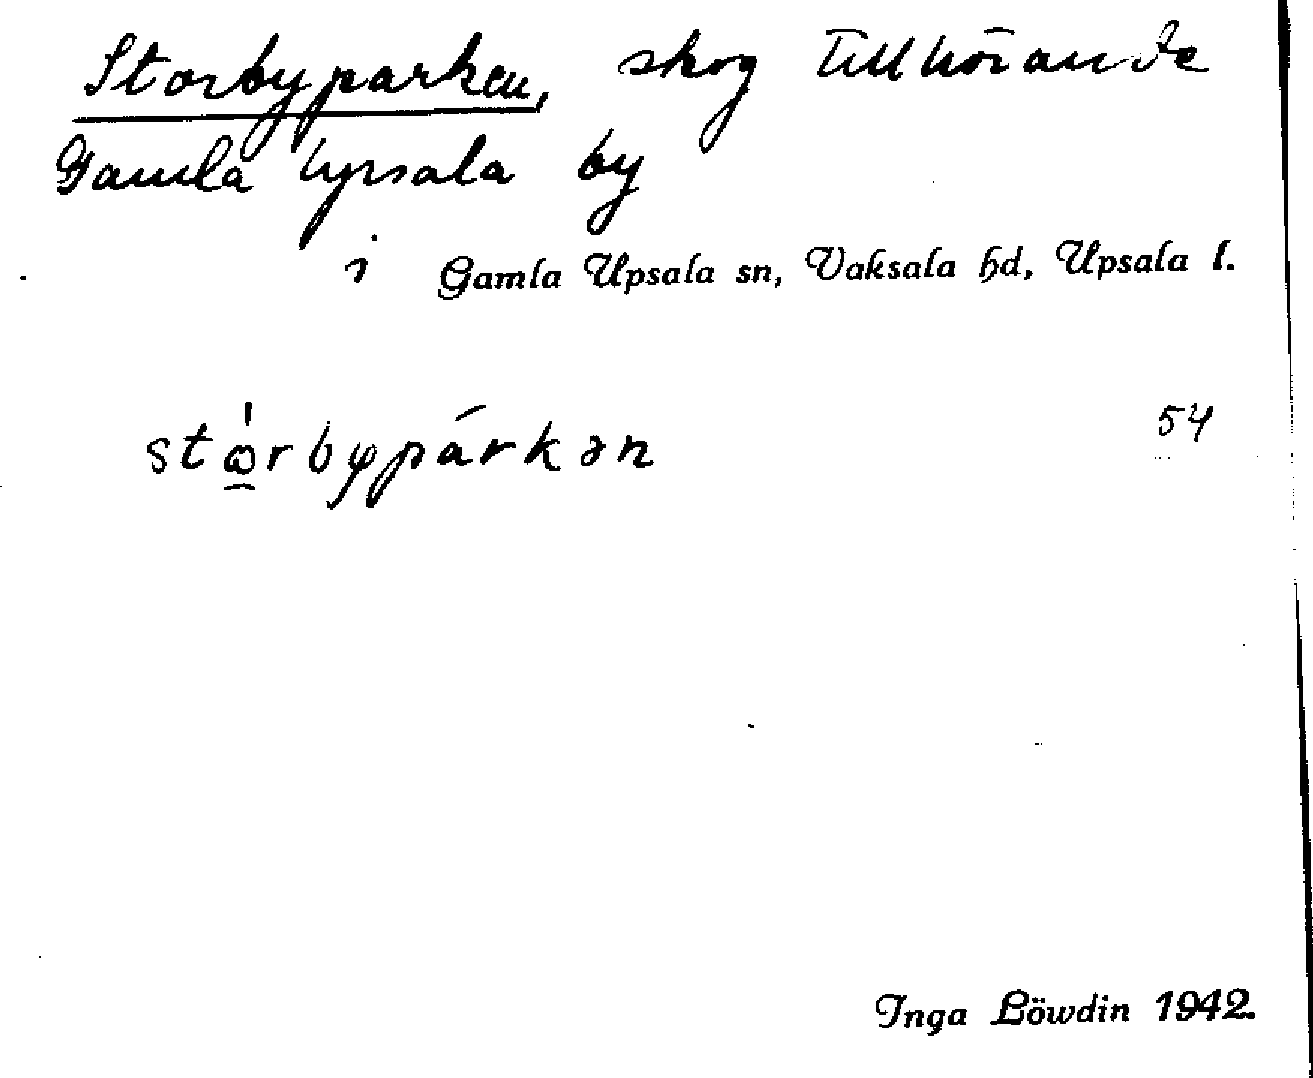 Storbyparken, skog tillhörande
Gamla Upsala by
i Gamla Upsala sn, Vaksala hd, Upsala l.
stώ̲rbypárkən
54
Inga Löwdin 1942.